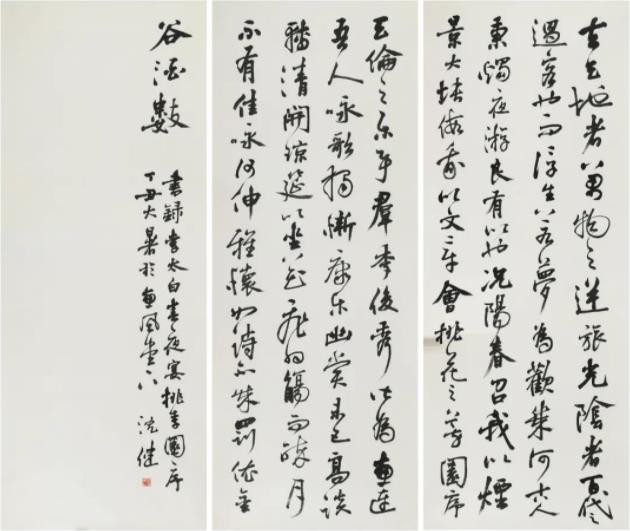 夫天地者萬物之逆旅光陰者百代之
過客也而浮生若夢為歡幾何古人
秉燭夜游良有以也況陽春召我以煙
景大塊假我以文章會桃花之芳園序
天倫之樂事羣季俊秀皆為惠連
吾人咏歌獨慚康樂幽賞未已高談
轉清開瓊筵以坐花飛羽觴而醉月
不有佳咏何伸雅懷如詩不成罰依金
谷酒數
書録李太白春夜宴桃李園序
丁丑大暑於惠風堂下 沈健